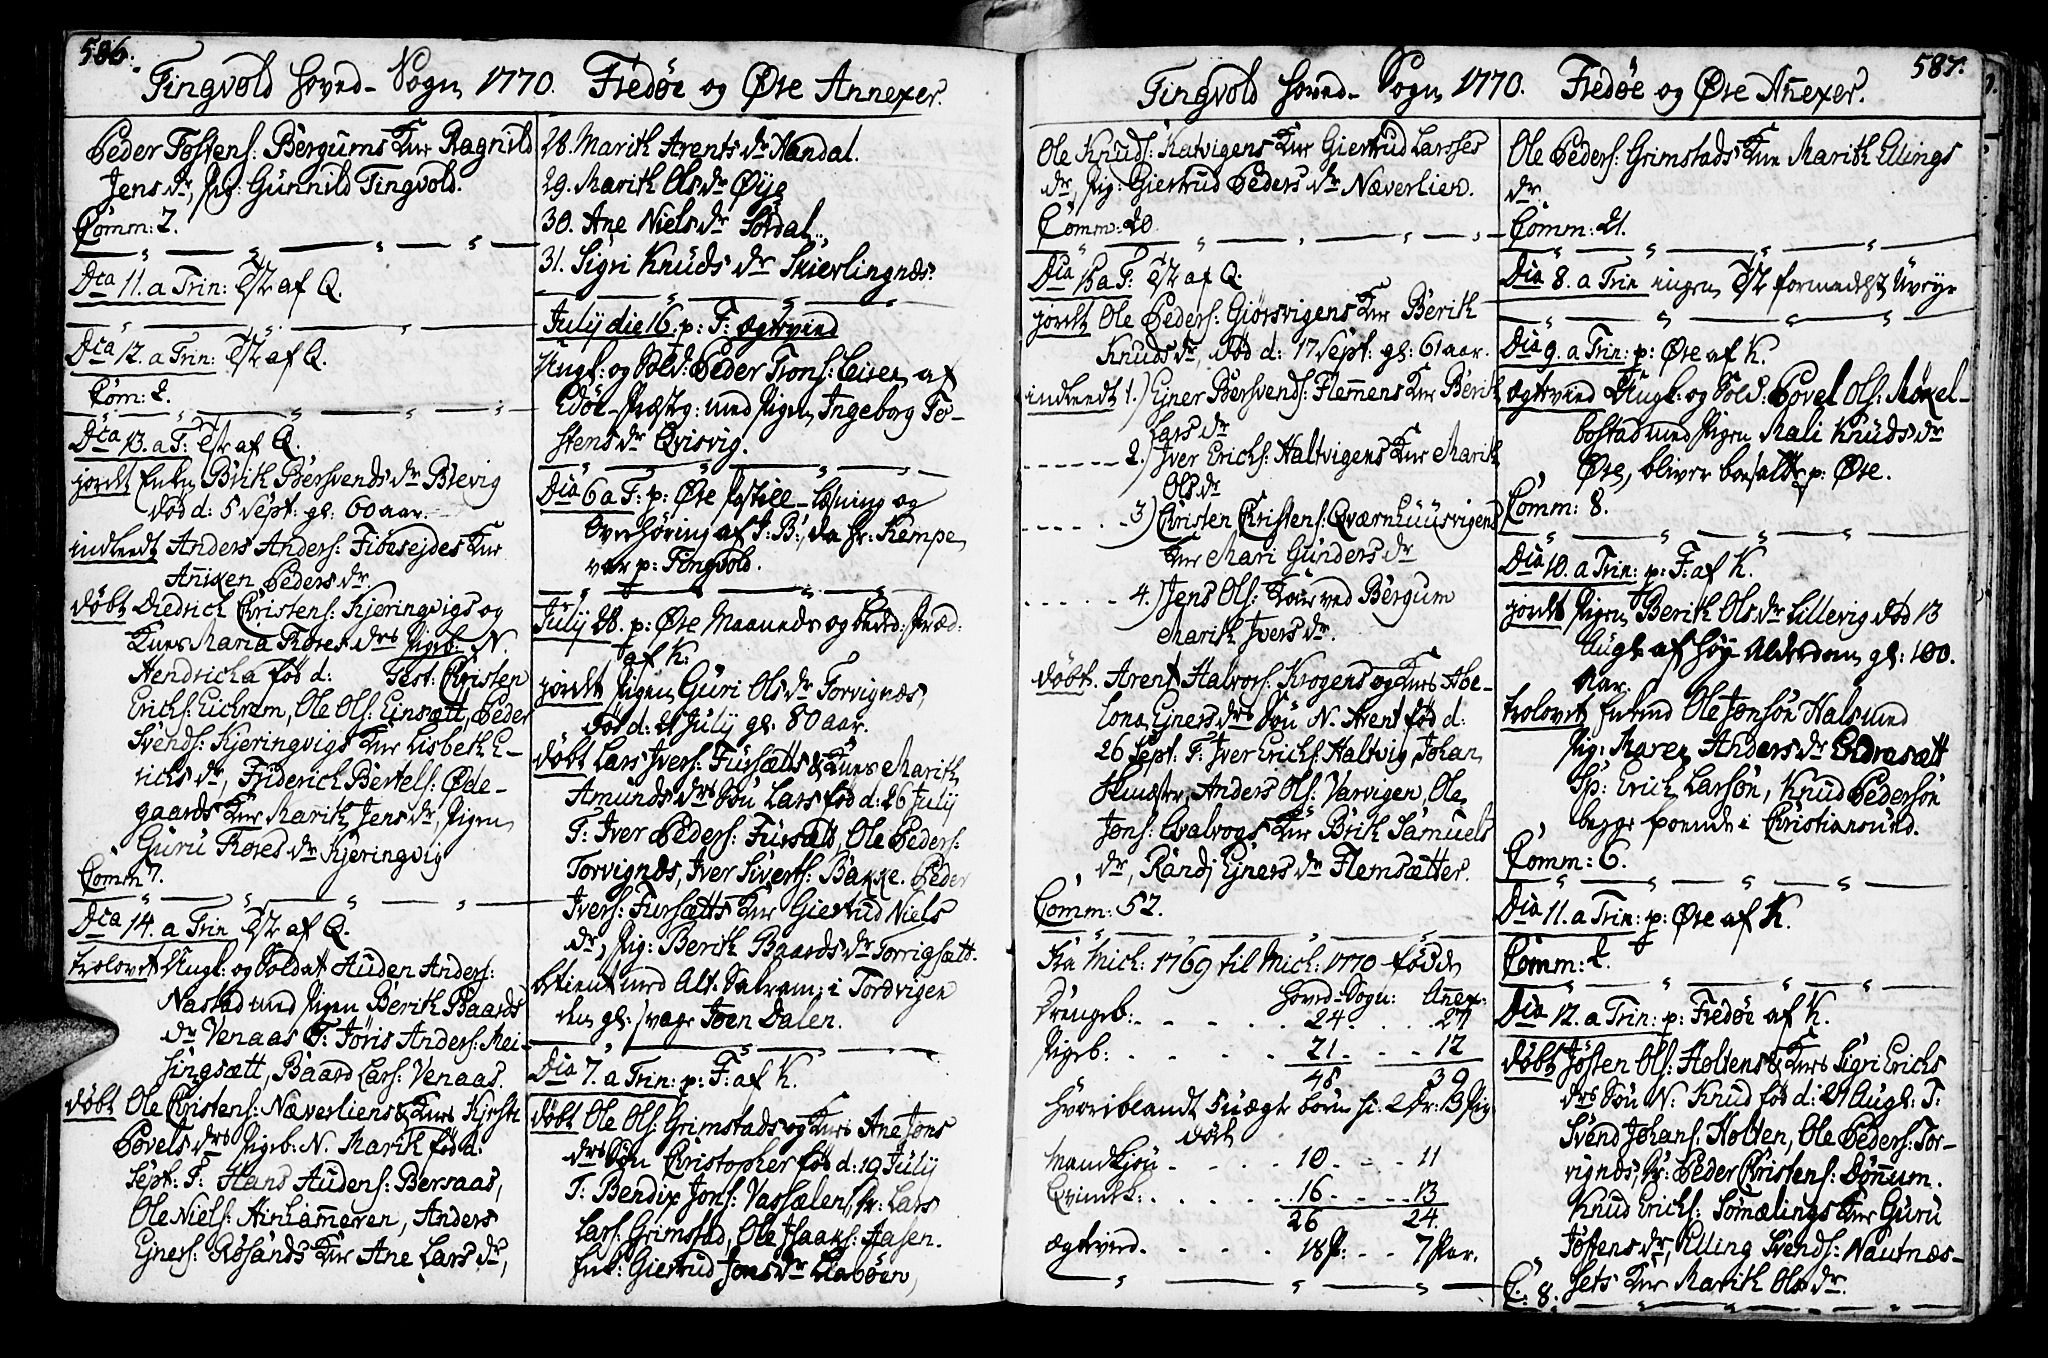 586.
Tingvold Hoved-Sogn 1770. Fredøe og Øre Annexer.
Peder Tostens: Bergums Kne Ragnild
Jens dr, Pig: Gunnild Tingvold.
Comm: 7.
Dca 11. a Trin: Tst af Q.
Dca 12. a Trin: Tst af Q.
Com: 2.
Dca 13. a T: Tst af Q.
jordet Enken Brith Bersvends dr Blevig
død d: 5 Sept: gl: 60 aar.
indleedt Anders Anders: Kne
Anixen Peders dr.
døbt Diedrich Christens: Kjeringvigs og
Knes Maria Tores drs Pigeb: N.
Hendricha fød d: Test: Christen
Erichs: Eichrem, Ole Ols: Einsætt, Peder
Svends: Kjeringvigs Kne Lisbeth E-
richs dr, Friderich Bertels: Øde-
gaards Kne Marith Jens dr, Pigen
Guru Tores dr Kjeringvig
Comm 7.
Dca 14. a Trin Tst af Q.
trolovet Ungk: og Soldat Auden Anders:
Nastad med Pigen Berith Baards
dr Venaas T: Joris Anders: Mei-
singsætt, Baard Lars: Venaas.
døbt Ole Christens: Næverliens & Knes Kjersti
Povels drs Pigeb: N. Marith fød d:
Sept: T: Hans Audens: Bersaas,
Ole Niels: Ainhameren, Anders
Ejners: Røsands Kne Ane Lars dr,
28. Marith Arents dr Handal.
29. Marith Ols dr Øye
30. Ane Niels dr Sordal.
31. Sigri Knuds dr Skierlingnds:
July die 16 p: F: ægtevied
Ungk: og Sold: Peder Trons: Leiren af
Edøe-Præstg: med Pigen Ingeborg To-
stens dr Qvisvig.
Dca 6 a T: p: Øre Postill-læsning og
Overhøring af J: B:, da Hr: Kempe
var p: Tingvold.
July 28. p: Øre Maaneds og Bered: Præd:
af K:
jordet Pigen Guri Ols dr Torvignæs,
død d: 21 July gl: 80 aar.
døbt Lars Ivers: Fursætts & Knes Marith
Amunds drs Søn Lars fød d: 26 July
T: Iver Peders: Fursætt, Ole Peders:
Torvignds, Iver Siverts: Bakke. Peder
Ivers: Fursætts Kne Giertrud Niels
dr, Pig: Berith Baards dr Torrigsætt.
betient med Alt: Sacram: i Tordvigen
den gl: svage Joen Dalen.
Dca 7. a Trin: p: F: af K.
døbt Ole Ols: Grimstads og Knes Ane Jons
drs Søn Christopher fød d: 19 July
T: Bendix Jons: Vassælen, Sr: Lars
Lars: Grimstad, Ole Isaaks: Aasen.
Enk: Giertrud Jons dr Liabøen,
587.
Tingvold Hoved-Sogn 1770. Fredøe og Øre Añexer.
Ole Knuds: Katvigens Kne Giertrud Larsses
dr, Pig: Giertrud Peders dr Næverlien.
Comm: 20.
Dca 15 a T: Tst af Q:
jordet Ole Peders: Giørsvigens Kne Berith
Knuds dr, død d: 17 Sept: gl: 61 aar.
indleedt 1.) Ejner Bersvends: Flemmens Kne Berith
Lars dr
2.) Iver Erichs: Haltvigens Kne Marith
Ols dr
3) Christen Christens: Qværnhuusvigens
Kne Mari Gunders dr
4.) Jens Ols: Kone ved Bergum
Marith Ivers dr.
døbt. Arent Halvors: Krogens og Knes Abe-
lona Ejners drs Søn N. Arent fød d:
26 Sept: T: Iver Erichs: Haltvig, Johan
Skiæster, Anders Ols: Varvigen, Ole
Jons: Qvalvogs Kne Brith Samuels
dr, Randj Ejners dr Flemsætter.
Comm: 52.
Fra Mich: 1769 til Mich: 1770 fødde
Hoved-Sogn: Añex:
Drengeb: 24. 27
Pigeb: 21. 12
45 39
hvoriblandt 5 uægte børn  2 Dr: 3 Pig
døde
Mandkjøn 10. 11
Qvindek: 16 13
26 24.
ægtevied. 18 P: 7 Par.
Ole Peders: Grimstads Kne Marith Ellings
dr.
Comm: 21.
Dca 8. a Trin ingen Tst formedelst Uveyr
Dca 9. a Trin: p: Øre af K.
ægtevied Ungk: og Sold: Povel Ols: Møkel-
bostad med Pigen Mali Knuds dr
Øre, bliver bosatt p: Øre.
Comm: 8.
Dca 10. a Trin: p: F: af K.
jordet Pigen Berith Ols dr Lillevig død 13
Aug: af høy Alderdom gl: 100.
Aar.
trolovet Enkmd Ole Jonsøn Hals med
Pig: Maren Anders dr Endresætt
Sp: Erich Larsøn, Knud Pedersøn
begge boende i Christiansund.
Comm: 6.
Dca 11. a Trin: p: Øre af K.
Comm: 2.
Dca 12. a Trin: p: Fredøe af K.
døbt Josten Ols: Holtens & Knes Sigri Erichs
drs Søn N: Knud fød d: 29 Aug: T:
Svend Johans: Holten, Ole Peders: Tor-
vignds, Sr: Peder Christens: Dønnum.
Knud Erichs: Somælings Kne Guru
Jostens dr, Elling Svends: Nautnæs-
C: 8. sets Kne Marith Ols dr.